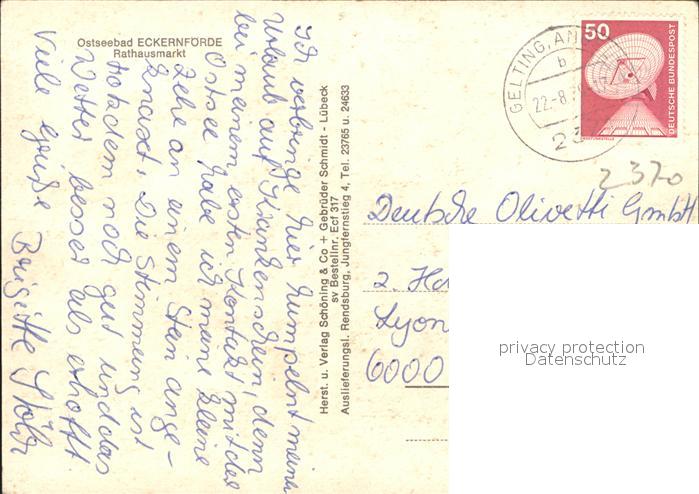 Ostseebad ECKERNFÖRDE
Rathausmarkt
Ich verbringe hier humpelnd meinen
Urlaub auf Krankenschein, denn
bei meinem ersten Kontakt mit der
Ostsee habe ich meine kleine
Zehe an einem Stein ange-
knaxt. Die Stimmung ist
trotzdem noch gut und das
Wetter besser als erhofft
Viele Grüße Brigitte Stöhr
Herst. u. Verlag Schöning & Co + Gebrüder Schmidt - Lübeck
sv Bestellnr. Ecf 317
Auslieferungsl. Rendsburg, Jungfernstieg 4, Tel. 23765 u. 24633
GELTING, AN
b
22.-8.
23
50
DEUTSCHE BUNDESPOST
2370
Deutsche Olivetti GmbH
2. Ha
Lyon
6000
privacy protection
Datenschutz